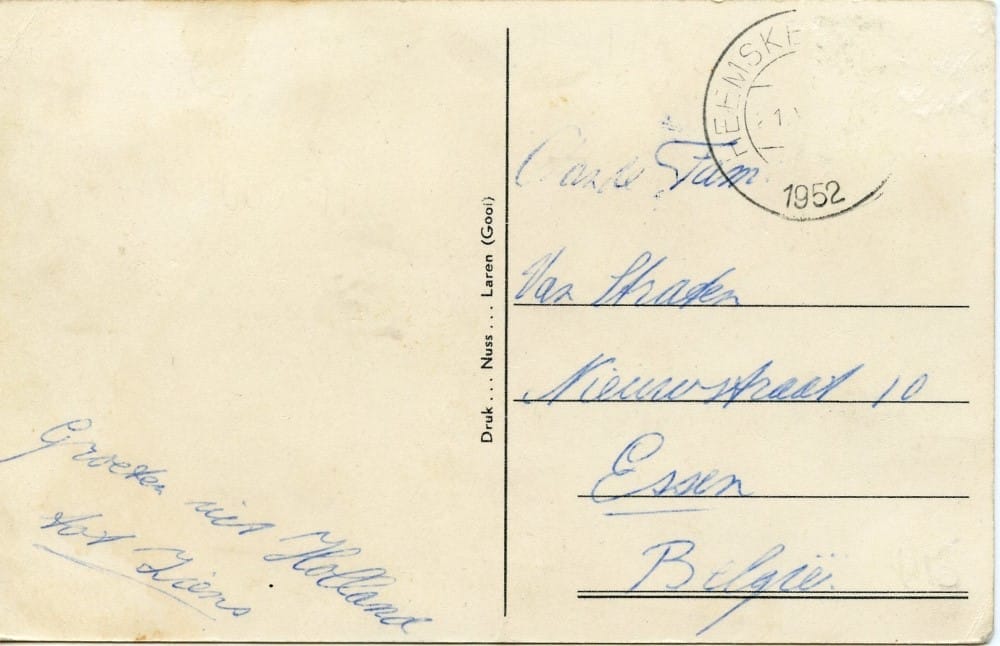 Groeten uit Holland
tot Ziens
Druk... Nuss... Laren (Gooi)
HEEMSKE
1952
Aan de Fam.
Van Straten
Nieuwstraat 10
Essen
België.